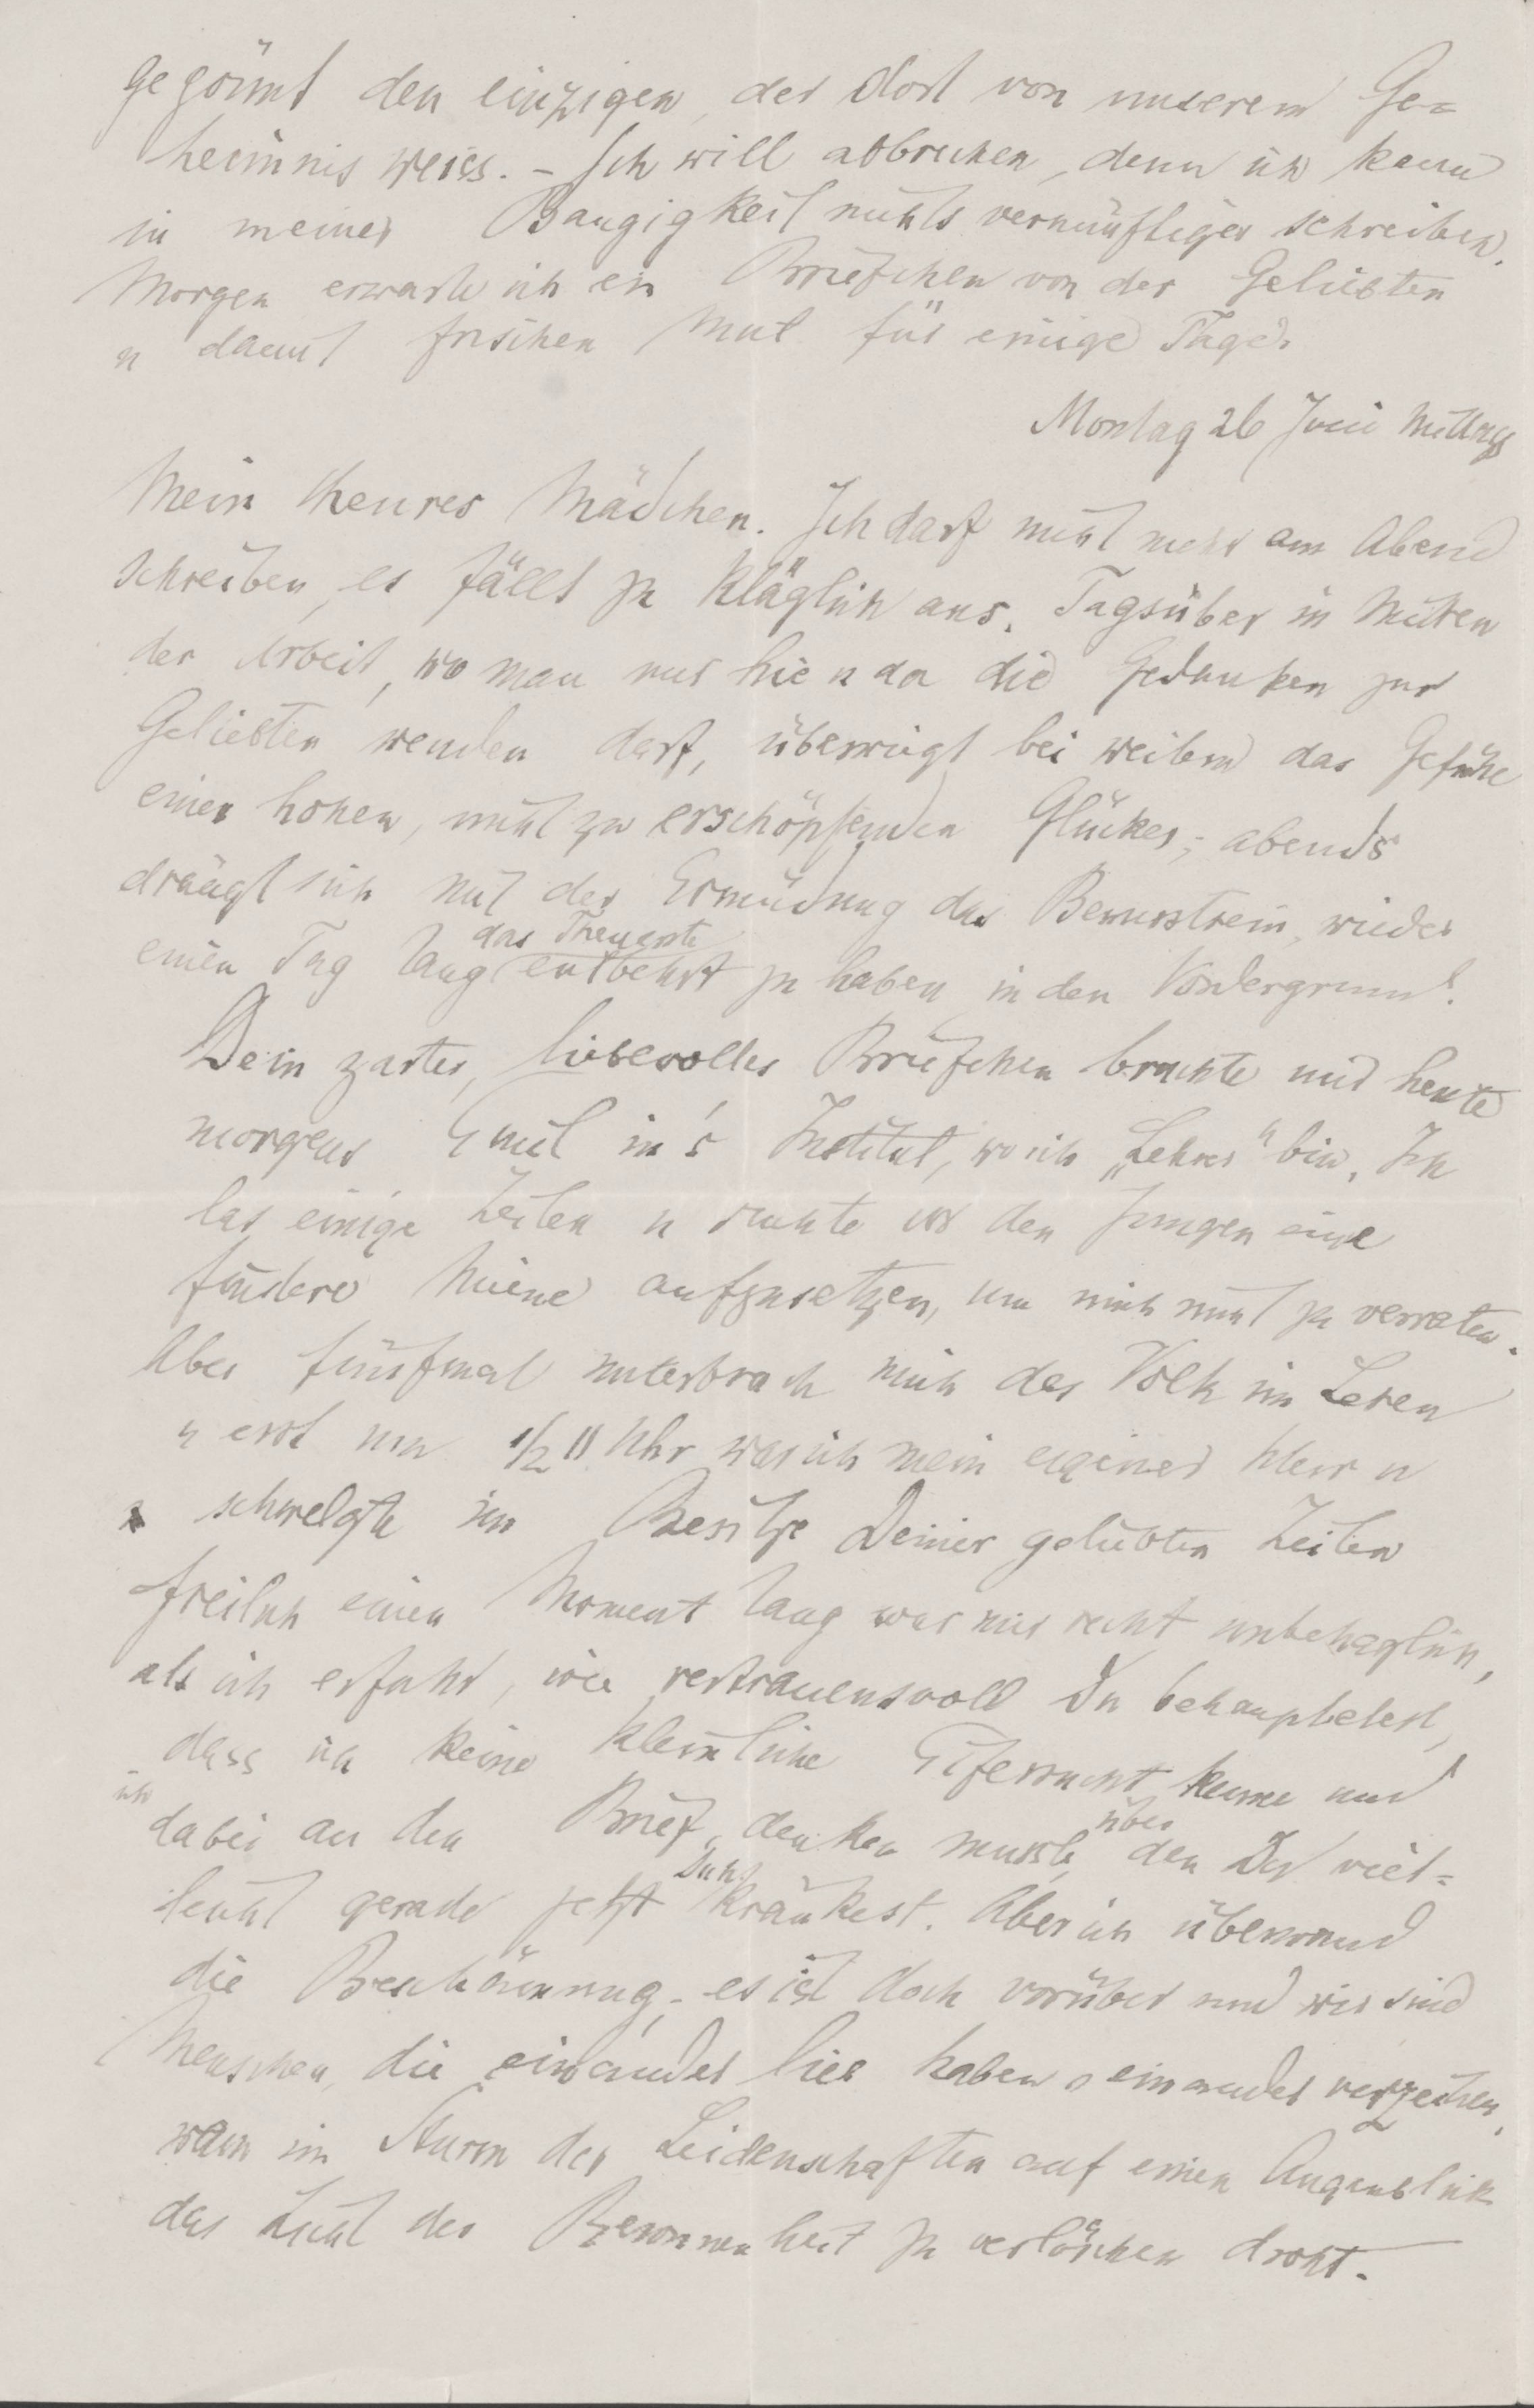 gegönnt den einzigen, der dort von unserem Ge=
heimnis weiss. – Ich will abbrechen, denn ich kann
in meiner Bangigkeit nichts vernünftiges schreiben.
Morgen erwarte ich ein Briefchen von der Geliebten
u damit frischen Mut für einige Tage.
Montag 26 Juni Mittags
Mein theures Mädchen. Ich darf nicht mehr am Abend
schreiben, es fällt zu kläglich aus. Tagsüber in Mitten
der Arbeit, wo man nur hie u da die Gedanken zur
Geliebten wenden darf, überwiegt bei weitem das Gefühl
eines hohen, nicht zu erschöpfenden Glückes; abends
drängt sich mit der Ermüdung das Bewusstsein, wieder
einen Tag lang das Theuerste entbehrt zu haben, in den Vordergrund.
Dein zartes, liebevolles Briefchen brachte mir heute
morgens Emil in's Institut, wo ich „Lehrer“ bin. Ich
las einige Zeilen u suchte vor den Jungen eine
finstere Miene aufzusetzen, um mich nicht zu verraten.
Aber fünfmal unterbrach mich das Volk im Lesen
u erst um 1/2 11 Uhr war ich mein eigener Herr u
schwelgte im Besitze Deiner geliebten Zeilen
freilich einen Moment lang war mir recht unbehaglich,
als ich erfuhr, wie vertrauensvoll Du behauptetest,
dass ich keine kleinliche Eifersucht kenne und
ich dabei an den Brief denken musste, über den Du viel=
leicht gerade jetzt Dich kränkest. Aber ich überwand
die Beschämung, es ist doch vorüber und wir sind
Menschen, die einander lieb haben u einander verzeihen,
wann im Sturm der Leidenschaften auf einen Augenblick
das Licht der Besonnenheit zu verlöschen droht. –